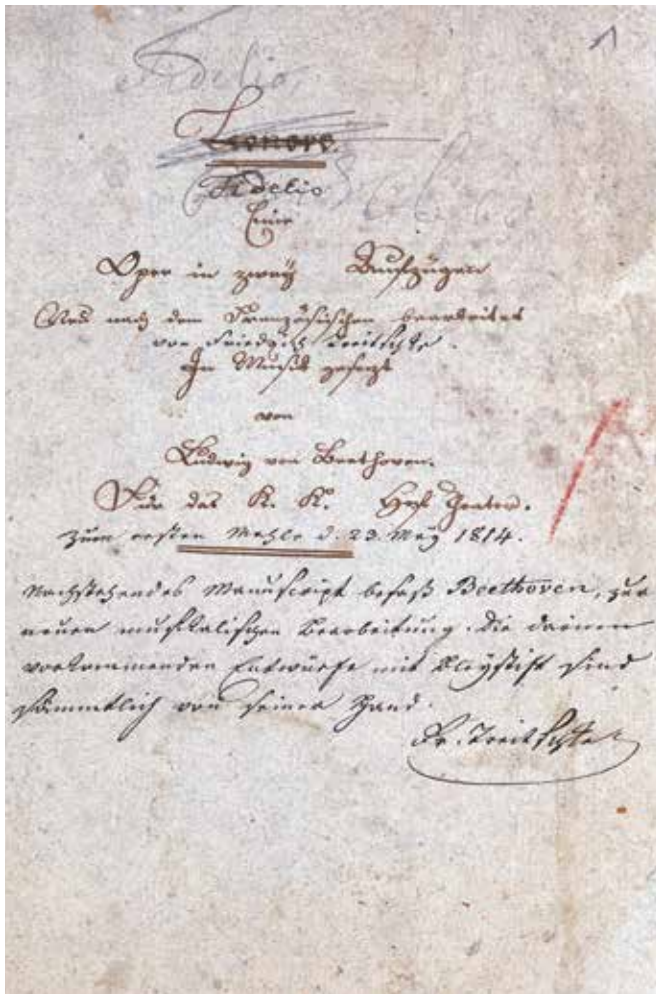 1
Fidelio
Leonore.
Fidelio
Eine
Oper in zwey Aufzügen
Neu nach dem Französischen bearbeitet
von Friedrich Treitschke.
In Musik gesetzt
von
Ludwig van Beethoven.
Für das K. K. Hof Theater.
zum ersten Mahle d. 23. May 1814.
Nachstehendes Manuscript besaß Beethoven, zur
neuen musikalischen Bearbeitung. Die darinn
vorkommenden Entwürfe mit Bleystift sind
sämmtlich von seiner Hand.
Fr. Treitschke